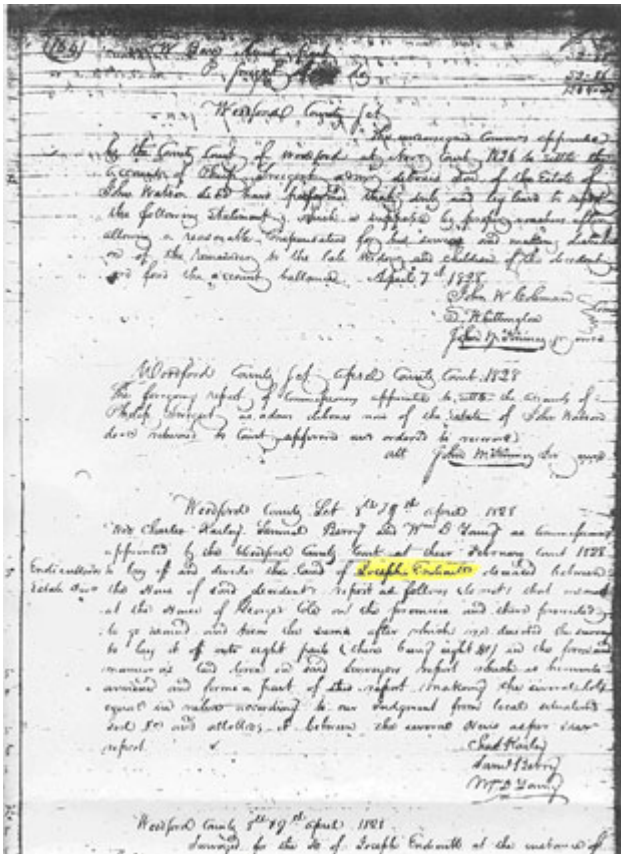 (166) W
Woodford County Sct
The undersigned Commrs appointed
by the County Court of Woodford at Novr Court 1826 to settle the
accounts of Philip admr debonis non of the Estate of
John Watson decd have performed that duty and beg leave to report
the following Statement, which is supported by proper vouchers after
allowing a reasonable Compensation for his services and making distributi
on of the remainder to the late Widow and children of the decedent
and find the account ballanced. April 7th 1828
John W Coleman
Whittington
John McKinney jr
Woodford County Sct April County Court 1828
The foregoing report of Commissioners appointed to settle the accounts of
Philip as admr debonis non of the estate of John Watson
decd returned to Court approved and ordered to be recorded
att John McKinney jr
Woodford County Sct 8th & 9th April 1828
We Charles Railey Samuel Berry and Wm B Young as Commissioners
appointed by the Woodford County Court at their February Court 1828
to lay off and divide the Land of Joseph Endicott deceased between
Estate
the Heirs of said decedent report as follows to wit: that we met
at the House of George Cole on the premises and then proceeded
to go round and view the same after which we directed the surveyor
to lay it off into eight parts (there being eight) in the form and
manner as laid down in said Surveyors report which is hereunto
annexed and forms a part of this report making the several lots
equal in value according to our Judgment from local situation
soil &c and allotted it between the several Heirs as per
report.
Chas Railey
Saml Berry
Wm B Young
Woodford County 8th & 9th April 1828
Surveyed for the of Joseph Endicott at the instance of